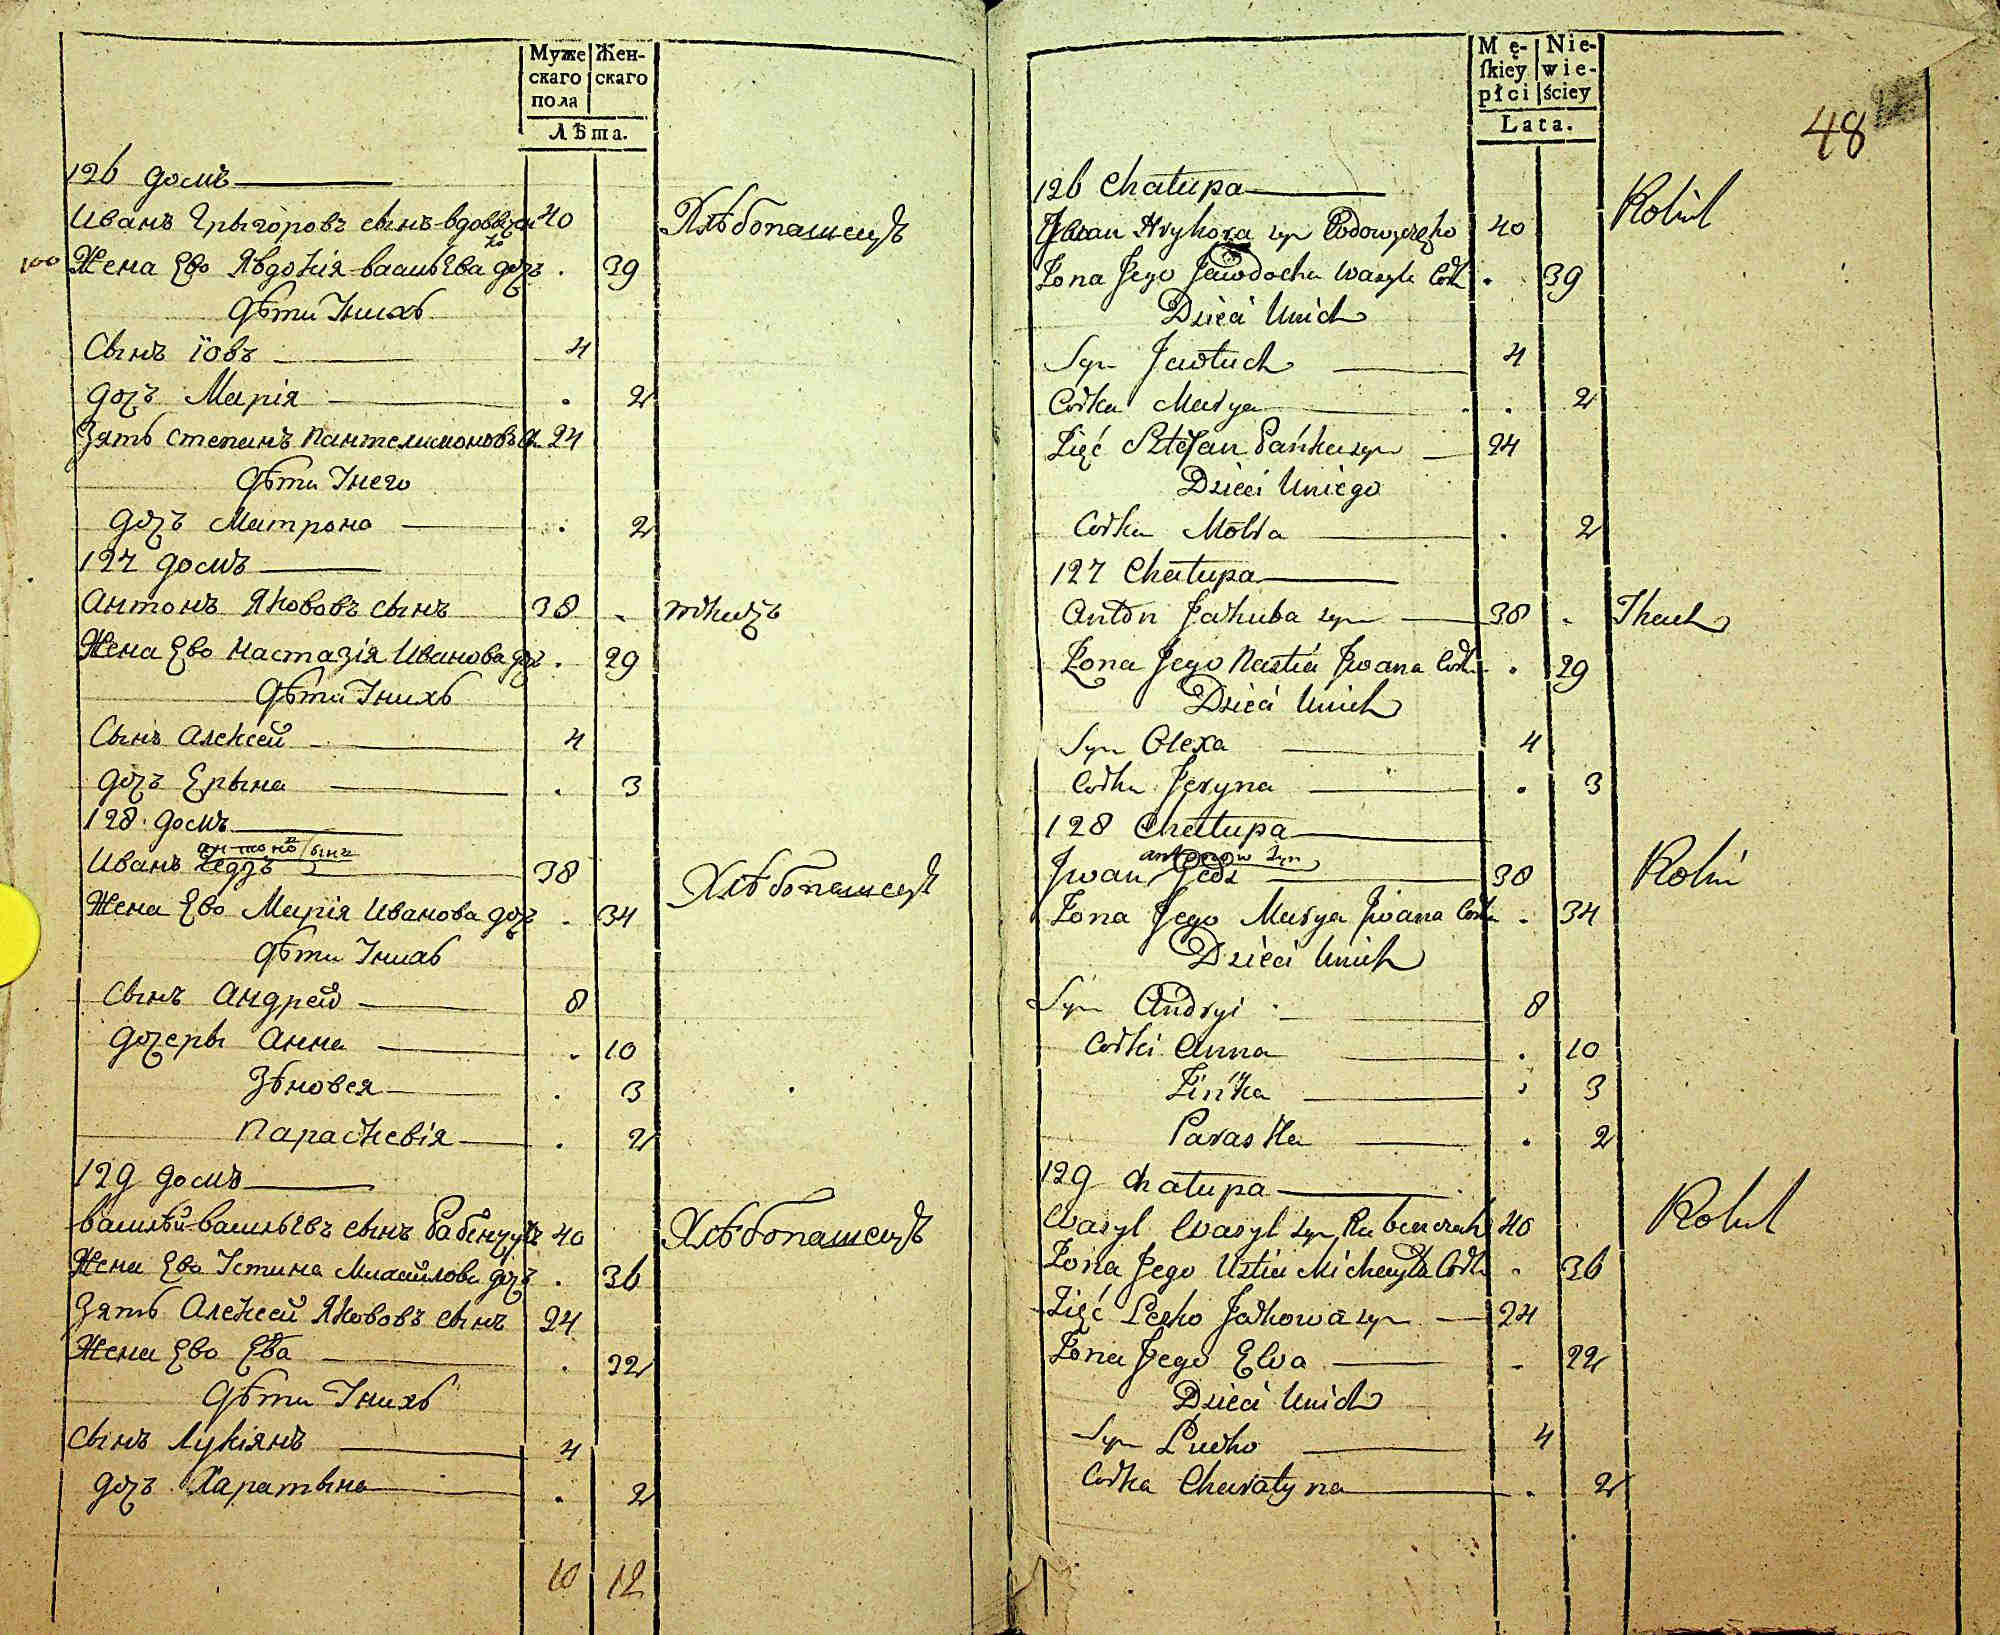 Муже Жен-
скаго скаго
пола
Лѣта.
126 домъ
Иванъ Грыгоровъ сынъ 40 Хлѣбопашецъ
100 Жена Ево Явдокія васильЕва дочъ . 39
Дѣти Унихъ
Сынъ Іовъ 4
дочъ Марія . 2
Зять степанъ пантелимоновъ 24
Дѣти Унего
дочъ Матрона . 2
127 домъ
антонъ Якововъ сынъ 38 . ткачъ
Жена Ево Настазія Иванова дочъ . 29
Дѣти Унихъ
Сынъ алексей 4
дочъ Ерына . 3
128 домъ
антоновъ сынъ
Иванъ 38 Хлѣбопашецъ
Жена Ево Марія Иванова дочъ . 34
Дѣти Унихъ
сынъ андрей 8
дочеры анна . 10
Зѣновея . 3
параскевія . 2
129 домъ
василѣй васильевъ сынъ 40 Хлѣбопашецъ
Жена Ево Устина Михайлова дочъ . 36
Зять алексей Якововъ сынъ 24
Жена Ево Ева . 22
Дѣти Унихъ
сынъ Лукіянъ 4
дочъ Харатына . 2
10 12
Mę- Nie-
ſkiey wie-
płci ściey
Lata.
48
126 Chałupa
Iwan Hryhora syn 40 Rolnik
Żona Jego Jawdocha Wasyla Corka . 39
Dzieci Unich
Syn Jawtuch 4
Corka Marya . 2
Zięć Sztefan Pańka syn 24
Dzieci Uniego
Corka Motra . 2
127 Chałupa
Anton Jakuba syn 38 . Tkacz
Żona Jego Nastia Iwana Cork . 29
Dzieci Unich
Syn Olexa 4
Corka Jeryna . 3
128 Chałupa
antonow syn
Iwan 38 Rolni
Żona Jego Marya Iwana Corka . 34
Dzieci Unich
Syn Andryi 8
Corki Anna . 10
Zińka . 3
Paraska . 2
129 Chałupa
Wasyl Wasyl syn 40 Rolnik
Żona Jego Ustia Michayła Corka . 36
Zięć Lesko Jakowa syn 24
Żona Jego Ewa . 22
Dzieci Unich
Syn Lućko 4
Corka Charatyna . 2